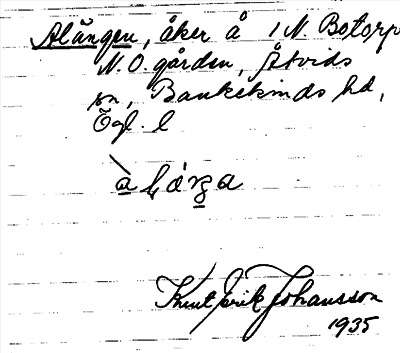 Alången, åker å 1 N. Botorp
N. O. gården, Åtvids
sn, Bankekinds hd,
Ögl. l
Knut Erik Johansson
1935